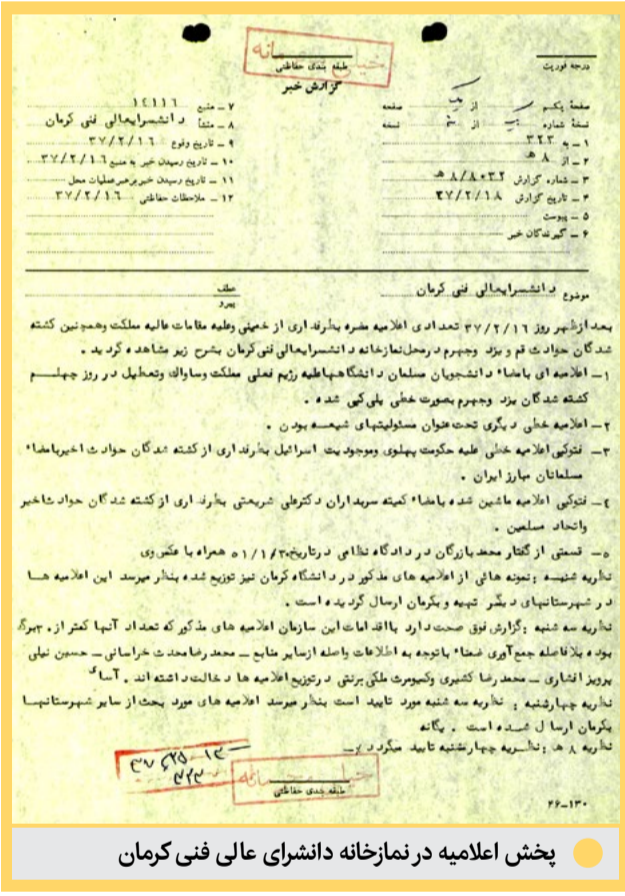 خیلی محرمانه
طبقه بندی حفاظتی
گزارش خبر
درجه فوریت
صفحه یکم از یک صفحه
نسخه شماره یک از نسخه
۱ ـ به ۳۲۳
۲ ـ از ۸ ه‍
۳ ـ شماره گزارش ۸/۸۰۳۲ ه‍
۴ ـ تاریخ گزارش ۳۷/۲/۱۸
۵ ـ پیوست
۶ ـ گیرندگان خبر
۷ ـ منبع ۱۴۱۱۶
۸ ـ منشأ دانشسرایعالی فنی کرمان
۹ ـ تاریخ وقوع ۳۷/۲/۱۶
۱۰ ـ تاریخ رسیدن خبر به منبع ۳۷/۲/۱۶
۱۱ ـ تاریخ رسیدن خبر برهبر عملیات محل
۱۲ ـ ملاحظات حفاظتی ۳۷/۲/۱۶
موضوع دانشسرایعالی فنی کرمان
عطف
پیرو
بعد ازظهر روز ۳۷/۲/۱۶ تعدادی اعلامیه مضره بطرفداری از خمینی وعلیه مقامات عالیه مملکت وهمچنین کشته
شدگان حوادث قم و یزد وجهرم درمحل نمازخانه دانشسرایعالی فنی کرمان بشرح زیر مشاهده گردید .
۱ـ اعلامیه ای بامضاء دانشجویان مسلمان دانشگاهها علیه رژیم فعلی مملکت وساواک وتعطیل در روز چهلم
کشته شدگان یزد وجهرم بصورت خطی پلی کپی شده .
۲ـ اعلامیه خطی دیگری تحت عنوان مسئولیتهای شیعه بودن .
۳ـ فتوکپی اعلامیه خطی علیه حکومت پهلوی وموجودیت اسرائیل بطرفداری از کشته شدگان حوادث اخیربامضاء
مسلمانان مبارز ایران .
٤ـ فتوکپی اعلامیه ماشین شده بامضاء کمیته سربداران دکترعلی شریعتی بطرفداری ازکشته شدگان حوادث اخیر
واتحاد مسلمین .
۵ـ قسمتی از گفتار محمد بازرگان در دادگاه نظامی درتاریخ ۵۱/۱/۳۰ همراه با عکس وی
نظریه شنبه : نمونه هائی از اعلامیه های مذکور در دانشگاه کرمان نیز توزیع شده بنظر میرسد این اعلامیه ها
در شهرستانهای دیگر تهیه و بکرمان ارسال گردیده است .
نظریه سه شنبه : گزارش فوق صحت دارد بااقدامات این سازمان اعلامیه های مذکور که تعداد آنها کمتر از ۳۰برگ
بوده بلافاصله جمع آوری ضمناء باتوجه به اطلاعات واصله ازسایر منابع ـ محمد رضا محدث خراسانی ـ حسین نیلی
پرویز افشاری ـ محمد رضا کشیری وکیومرث ملکی برنتی درتوزیع اعلامیه ها دخالت داشته اند . آسا
نظریه چهارشنبه : نظریه سه شنبه مورد تایید است بنظر میرسد اعلامیه های مورد بحث از سایر شهرستانها
بکرمان ارسال شده است . یگانه
نظریه ۸ ه‍ : نظریه چهارشنبه تایید میگردد
خیلی محرمانه
طبقه بندی حفاظتی
۲۶-۱۳۰
پخش اعلامیه در نمازخانه دانشرای عالی فنی کرمان